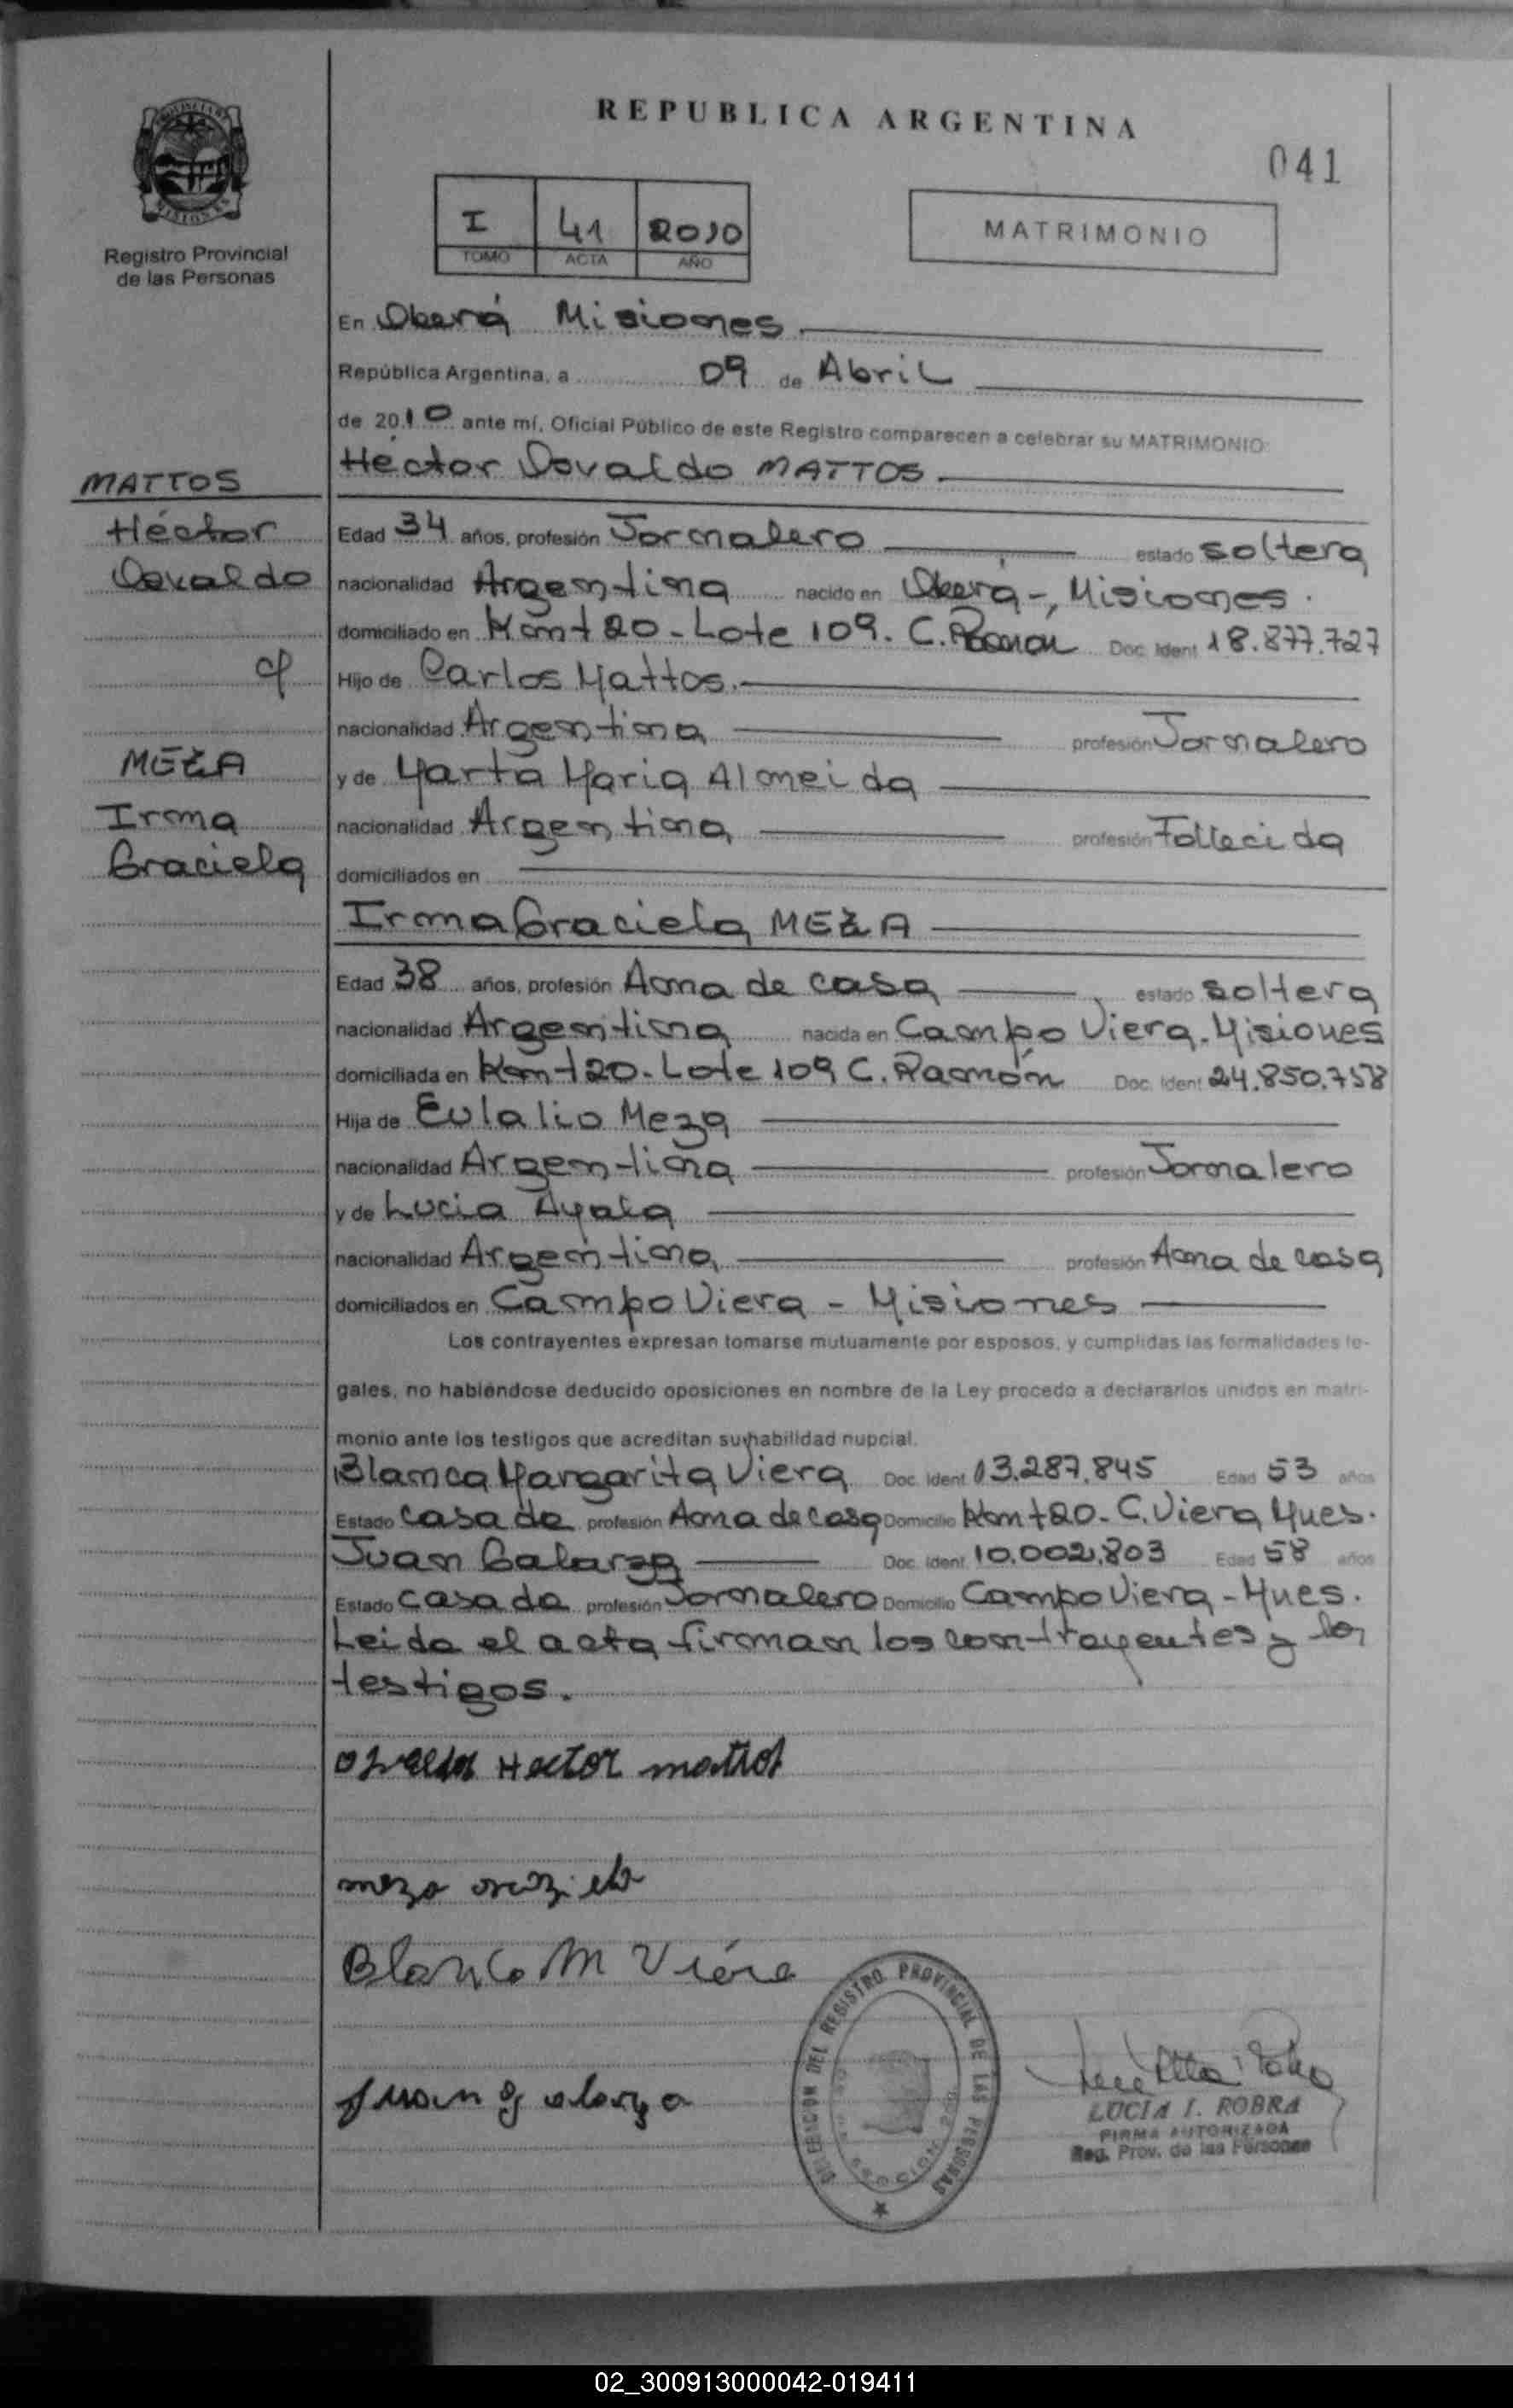 REPUBLICA ARGENTINA
041
I 41 2010
TOMO ACTA AÑO
MATRIMONIO
Registro Provincial
de las Personas
En Oberá Misiones
República Argentina, a 09 de Abril
de 2010 ante mí, Oficial Público de este Registro comparecen a celebrar su MATRIMONIO
Héctor Osvaldo MATTOS
MATTOS
Héctor
Osvaldo
c/
MEZA
Irma
Graciela
Edad 34 años, profesión Jornalero estado soltero
nacionalidad Argentina nacido en Oberá-, Misiones.
domiciliado en Km+20-Lote 109. C. Ramón Doc. Ident 18.877.727
Hijo de Carlos Mattos.
nacionalidad Argentina profesión Jornalero
y de Marta Maria Almeida
nacionalidad Argentina profesión Fallecida
domiciliados en
Irma Graciela MEZA
Edad 38 años, profesión Ama de casa estado soltera
nacionalidad Argentina nacida en Campo Viera. Misiones
domiciliada en Km+20-Lote 109 C. Ramón Doc. Ident 24.850.758
Hija de Eulalio Meza
nacionalidad Argentina profesión Jornalero
y de Lucia Ayala
nacionalidad Argentina profesión Ama de casa
domiciliados en Campo Viera - Misiones
Los contrayentes expresan tomarse mutuamente por esposos, y cumplidas las formalidades le-
gales, no habiéndose deducido oposiciones en nombre de la Ley procedo a declararlos unidos en matri-
monio ante los testigos que acreditan su habilidad nupcial.
Blanca Margarita Viera Doc. Ident 13.287.845 Edad 53 años
Estado casada profesión Ama de casa Domicilio Km+20-C. Viera Mnes.
Juan Galarza Doc. Ident 10.002.803 Edad 58 años
Estado casado profesión Jornalero Domicilio Campo Viera-Mnes.
Leida el acta firman los contrayentes y los
testigos.
Hector mattos
meza
Blanca M Viera
juan galarza
DELEGACION DEL REGISTRO PROVINCIAL DE LAS PERSONAS
LUCIA I. ROBRA
FIRMA AUTORIZADA
Reg. Prov. de las Personas
02_300913000042-019411